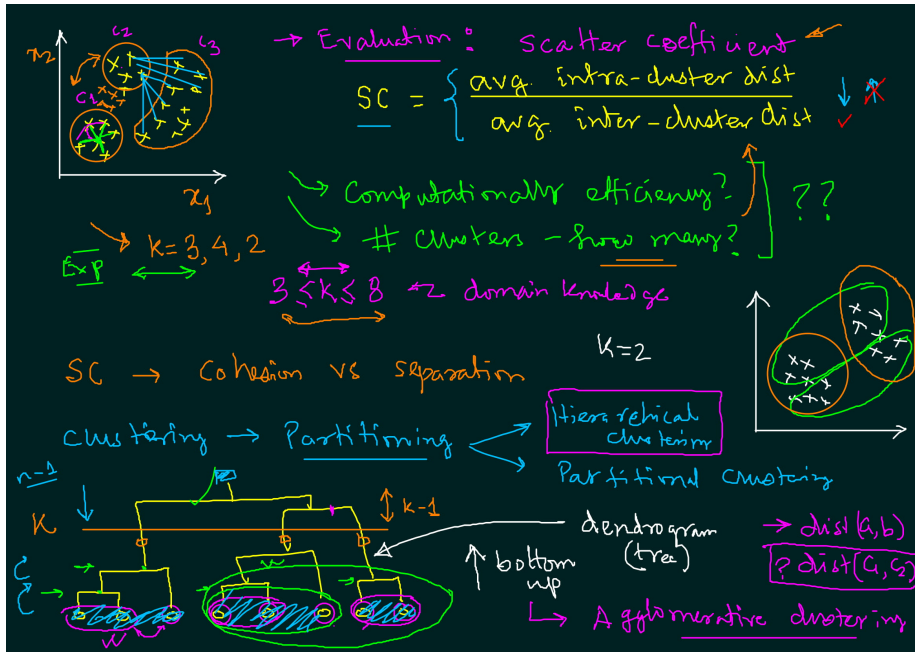 C2
C3
x2
C1
x1
→ Evaluation: Scatter coefficient
SC = { avg. intra-cluster dist
avg. inter-cluster dist
↓ ↑
Computationally efficiency?
# clusters - how many?
??
k=3,4,2
Exp
3 ≤ k ≤ 8 ← domain knowledge
K=2
SC → Cohesion vs separation
clustering → Partitioning
Hierarchical
clustering
Partitional clustering
n-1
K
k-1
dendrogram
(tree)
→ dist(a,b)
? dist(C1,C2)
↑ bottom
up
↳ Agglomerative clustering